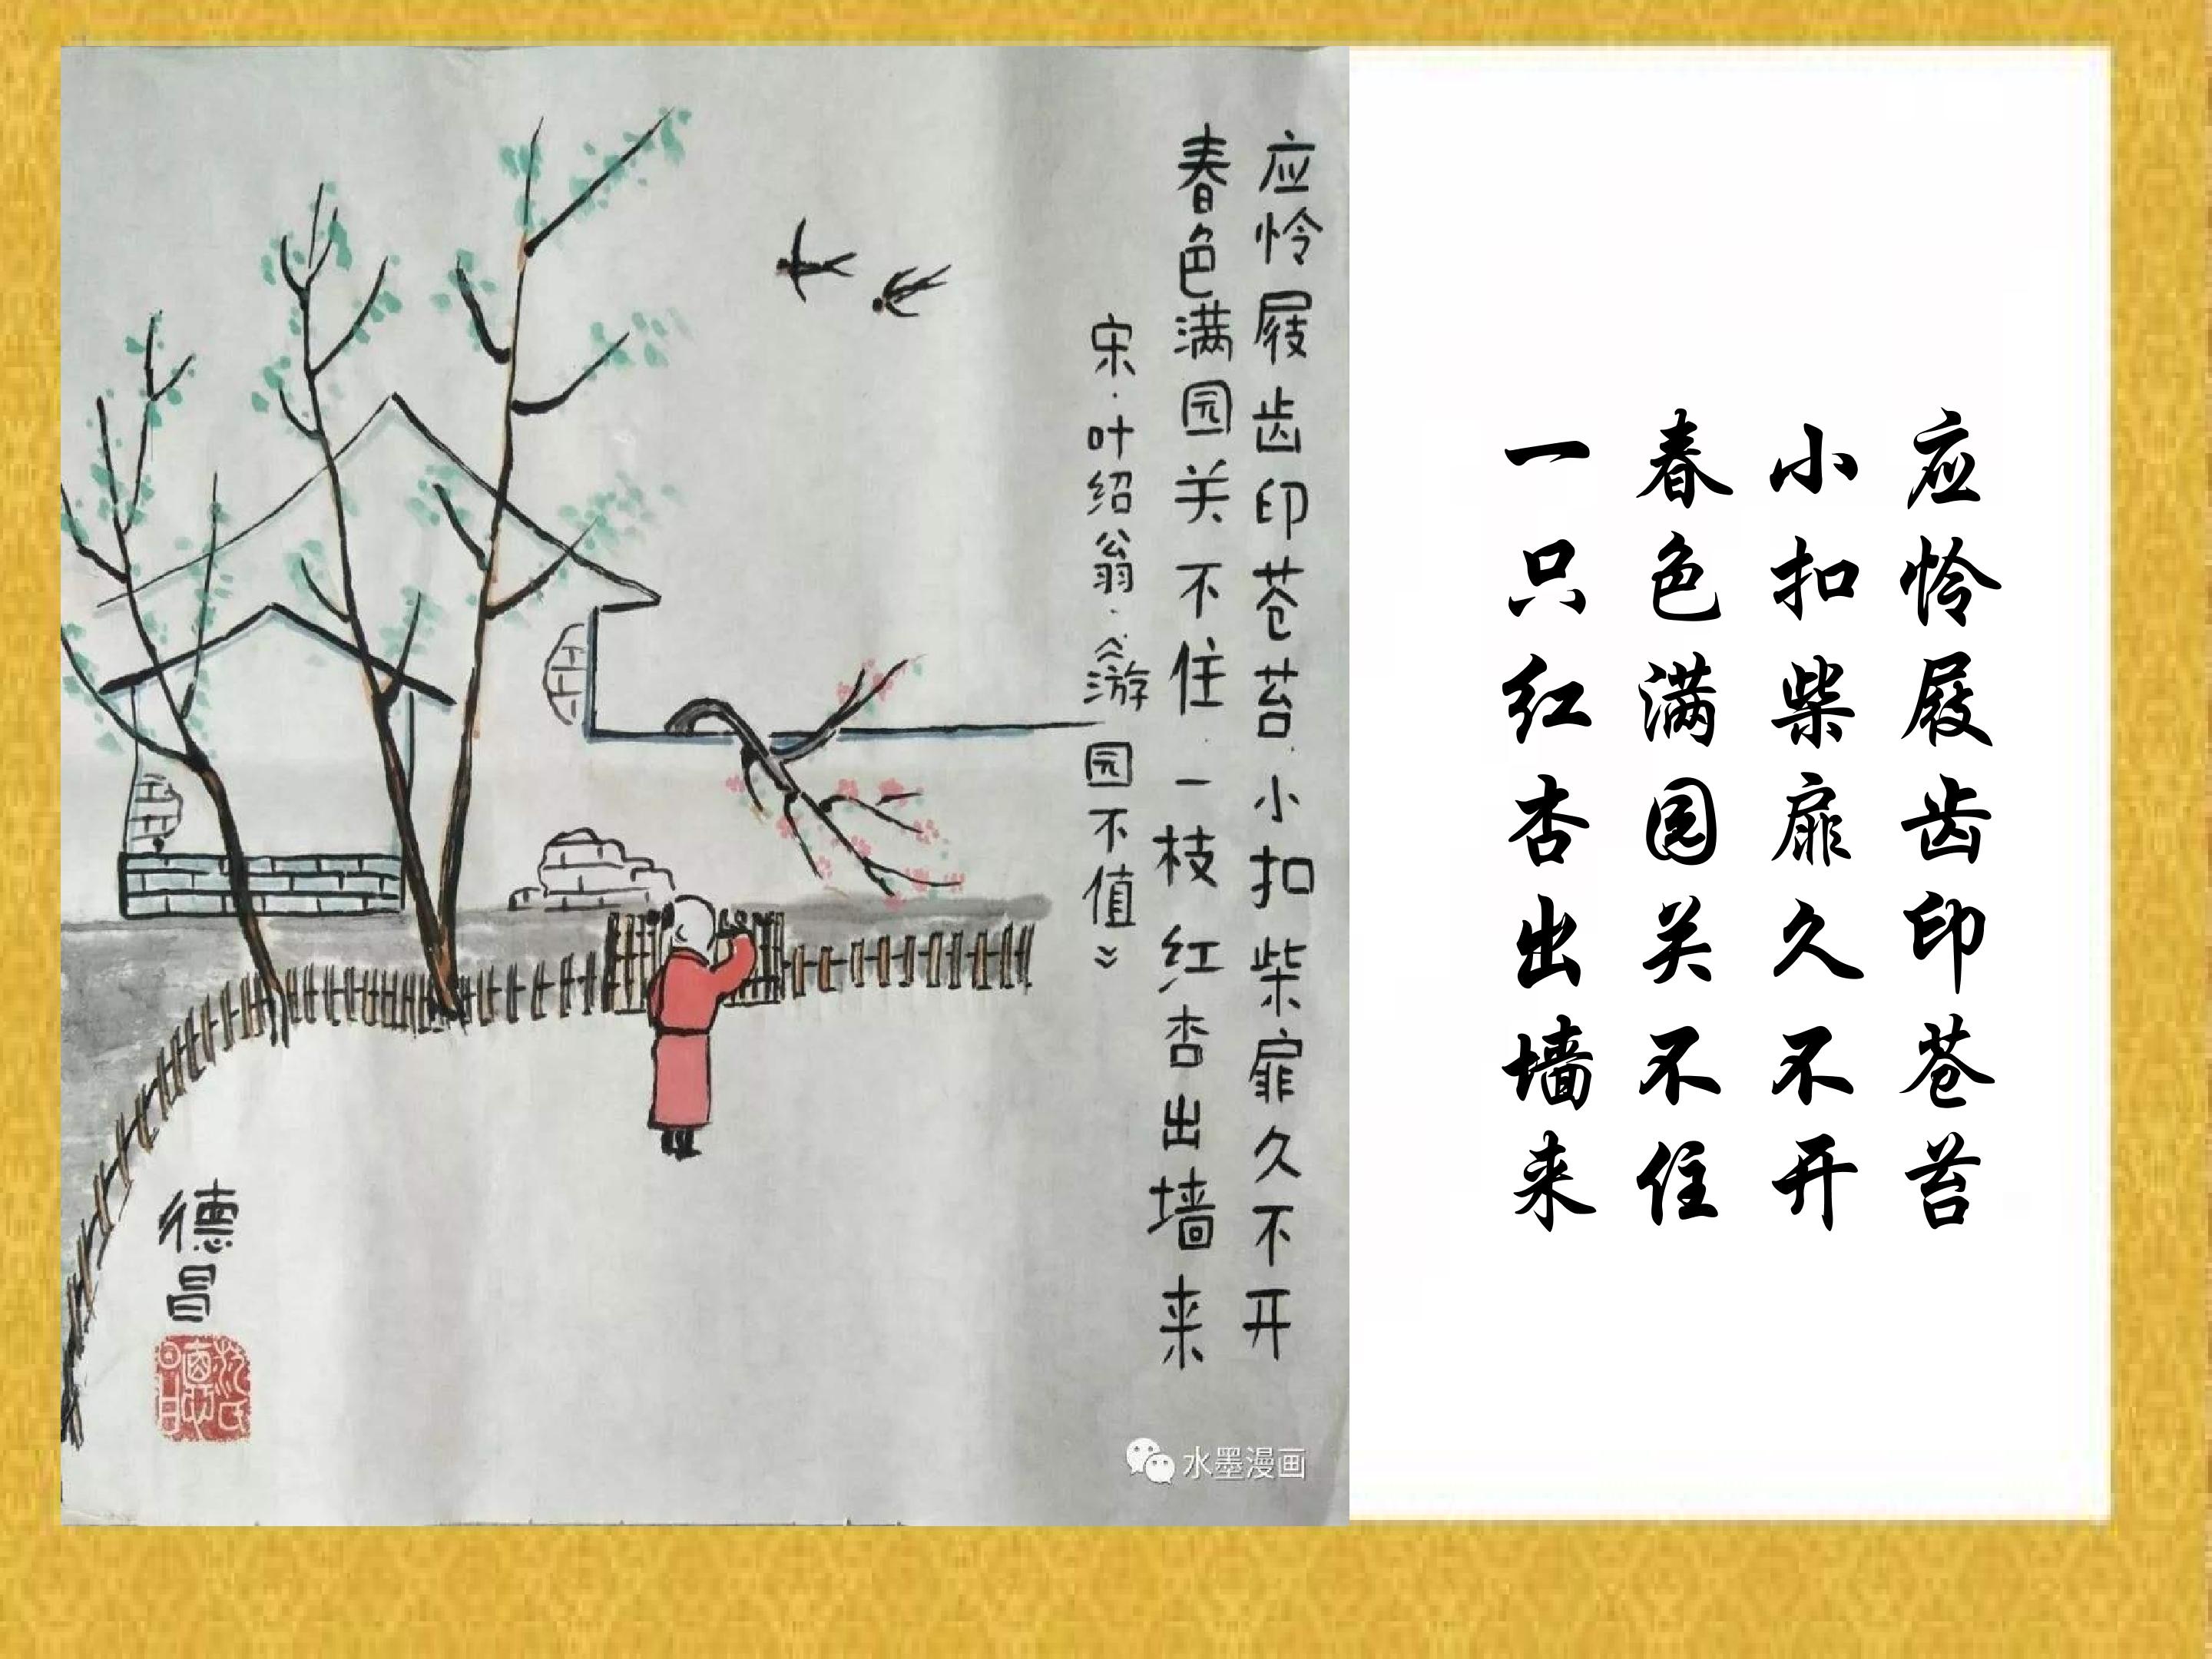 应怜屐齿印苍苔.小扣柴扉久不开
春色满园关不住.一枝红杏出墙来
宋·叶绍翁·《游园不值》
德昌
水墨漫画
应怜屐齿印苍苔
小扣柴扉久不开
春色满园关不住
一只红杏出墙来